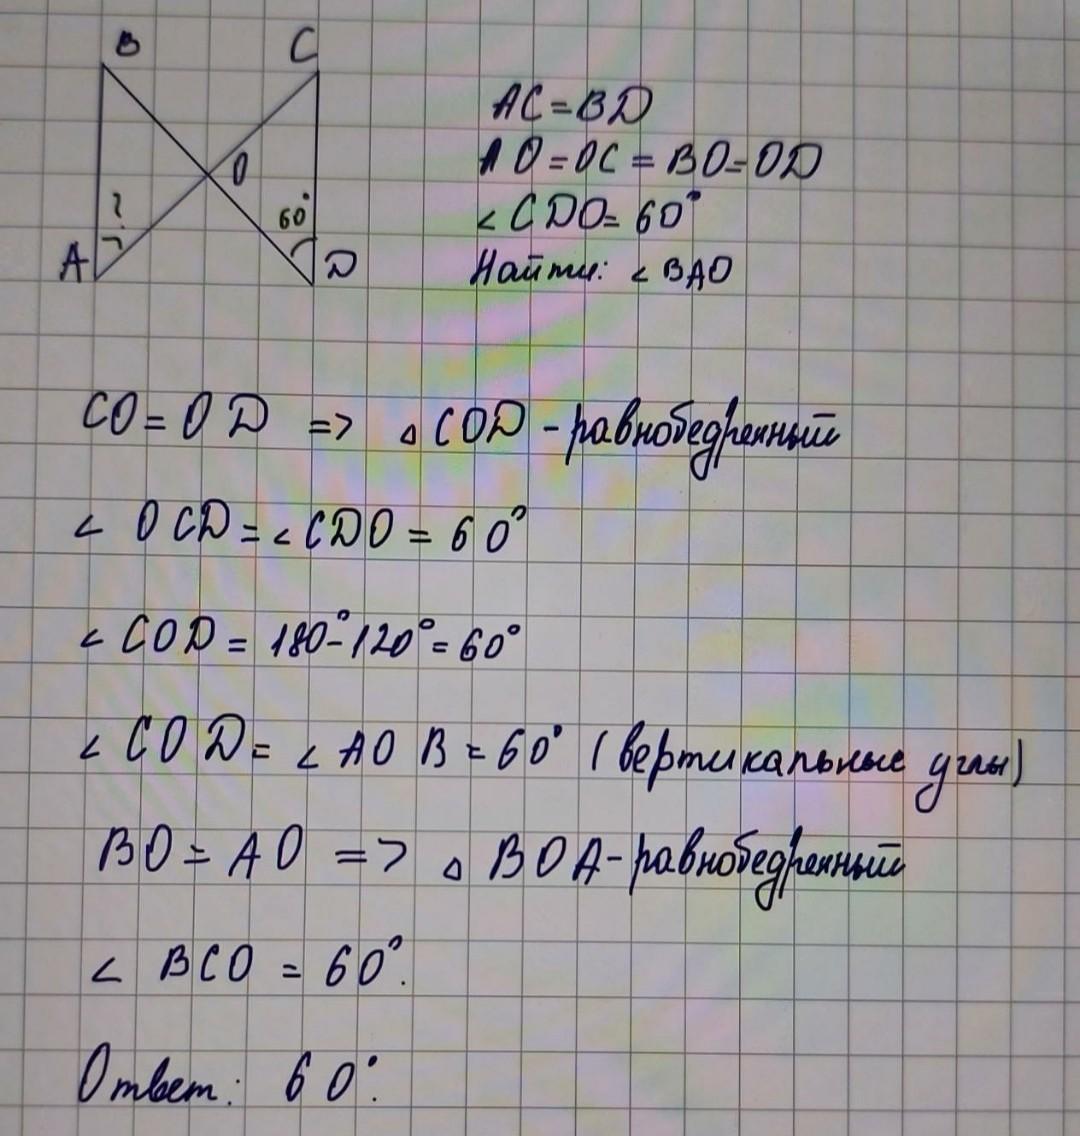 B C
O
?
60°
A D
AC = BD
AO = OC = BO = OD
∠CDO = 60°
Найти: ∠BAO
CO = OD => △COD - равнобедренный
∠OCD = ∠CDO = 60°
∠COD = 180° - 120° = 60°
∠COD = ∠AOB = 60° (вертикальные углы)
BO = AO => △BOA - равнобедренный
∠BCO = 60°.
Ответ: 60°.